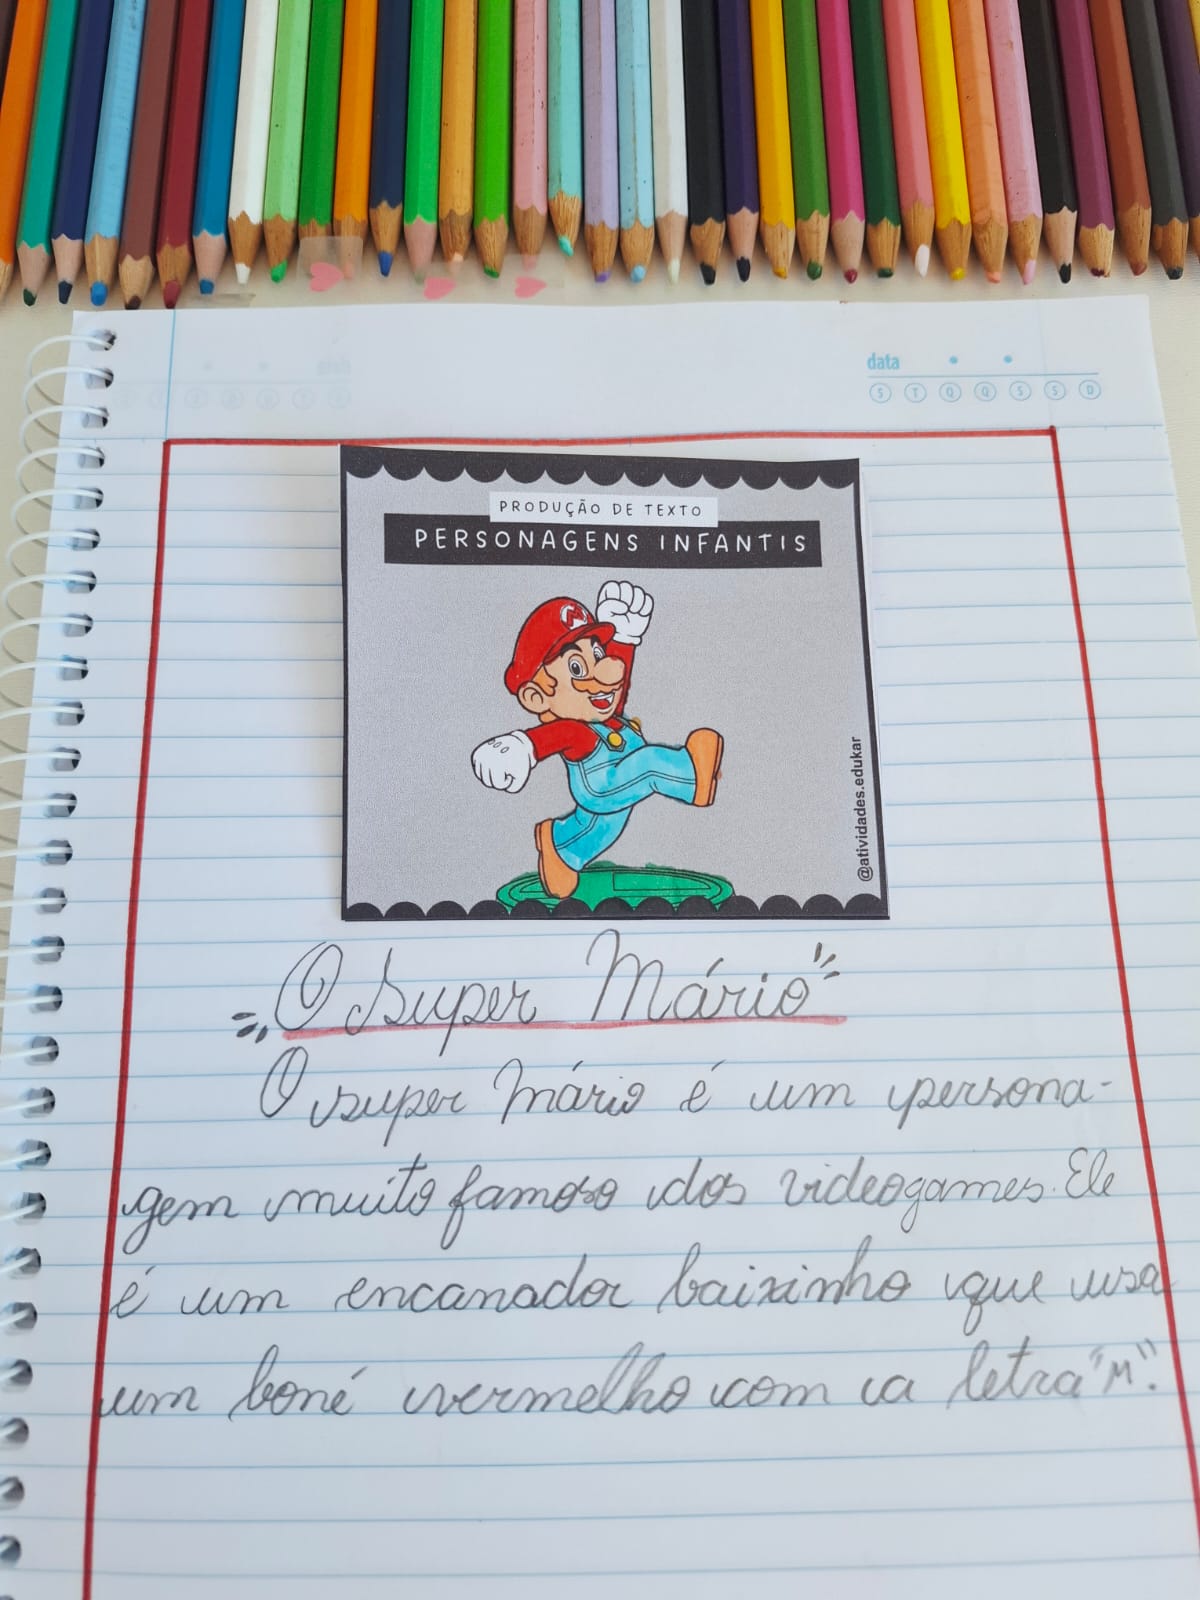 data
S T Q Q S S D
PRODUÇÃO DE TEXTO
PERSONAGENS INFANTIS
M
@atividades.edukar
O Super Mário
O super Mário é um persona-
gem muito famoso dos videogames. Ele
é um encanador baixinho que usa
um boné vermelho com a letra "M".